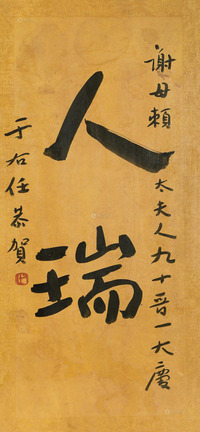 謝母賴太夫人九十晉一大慶
人瑞
于右任恭賀